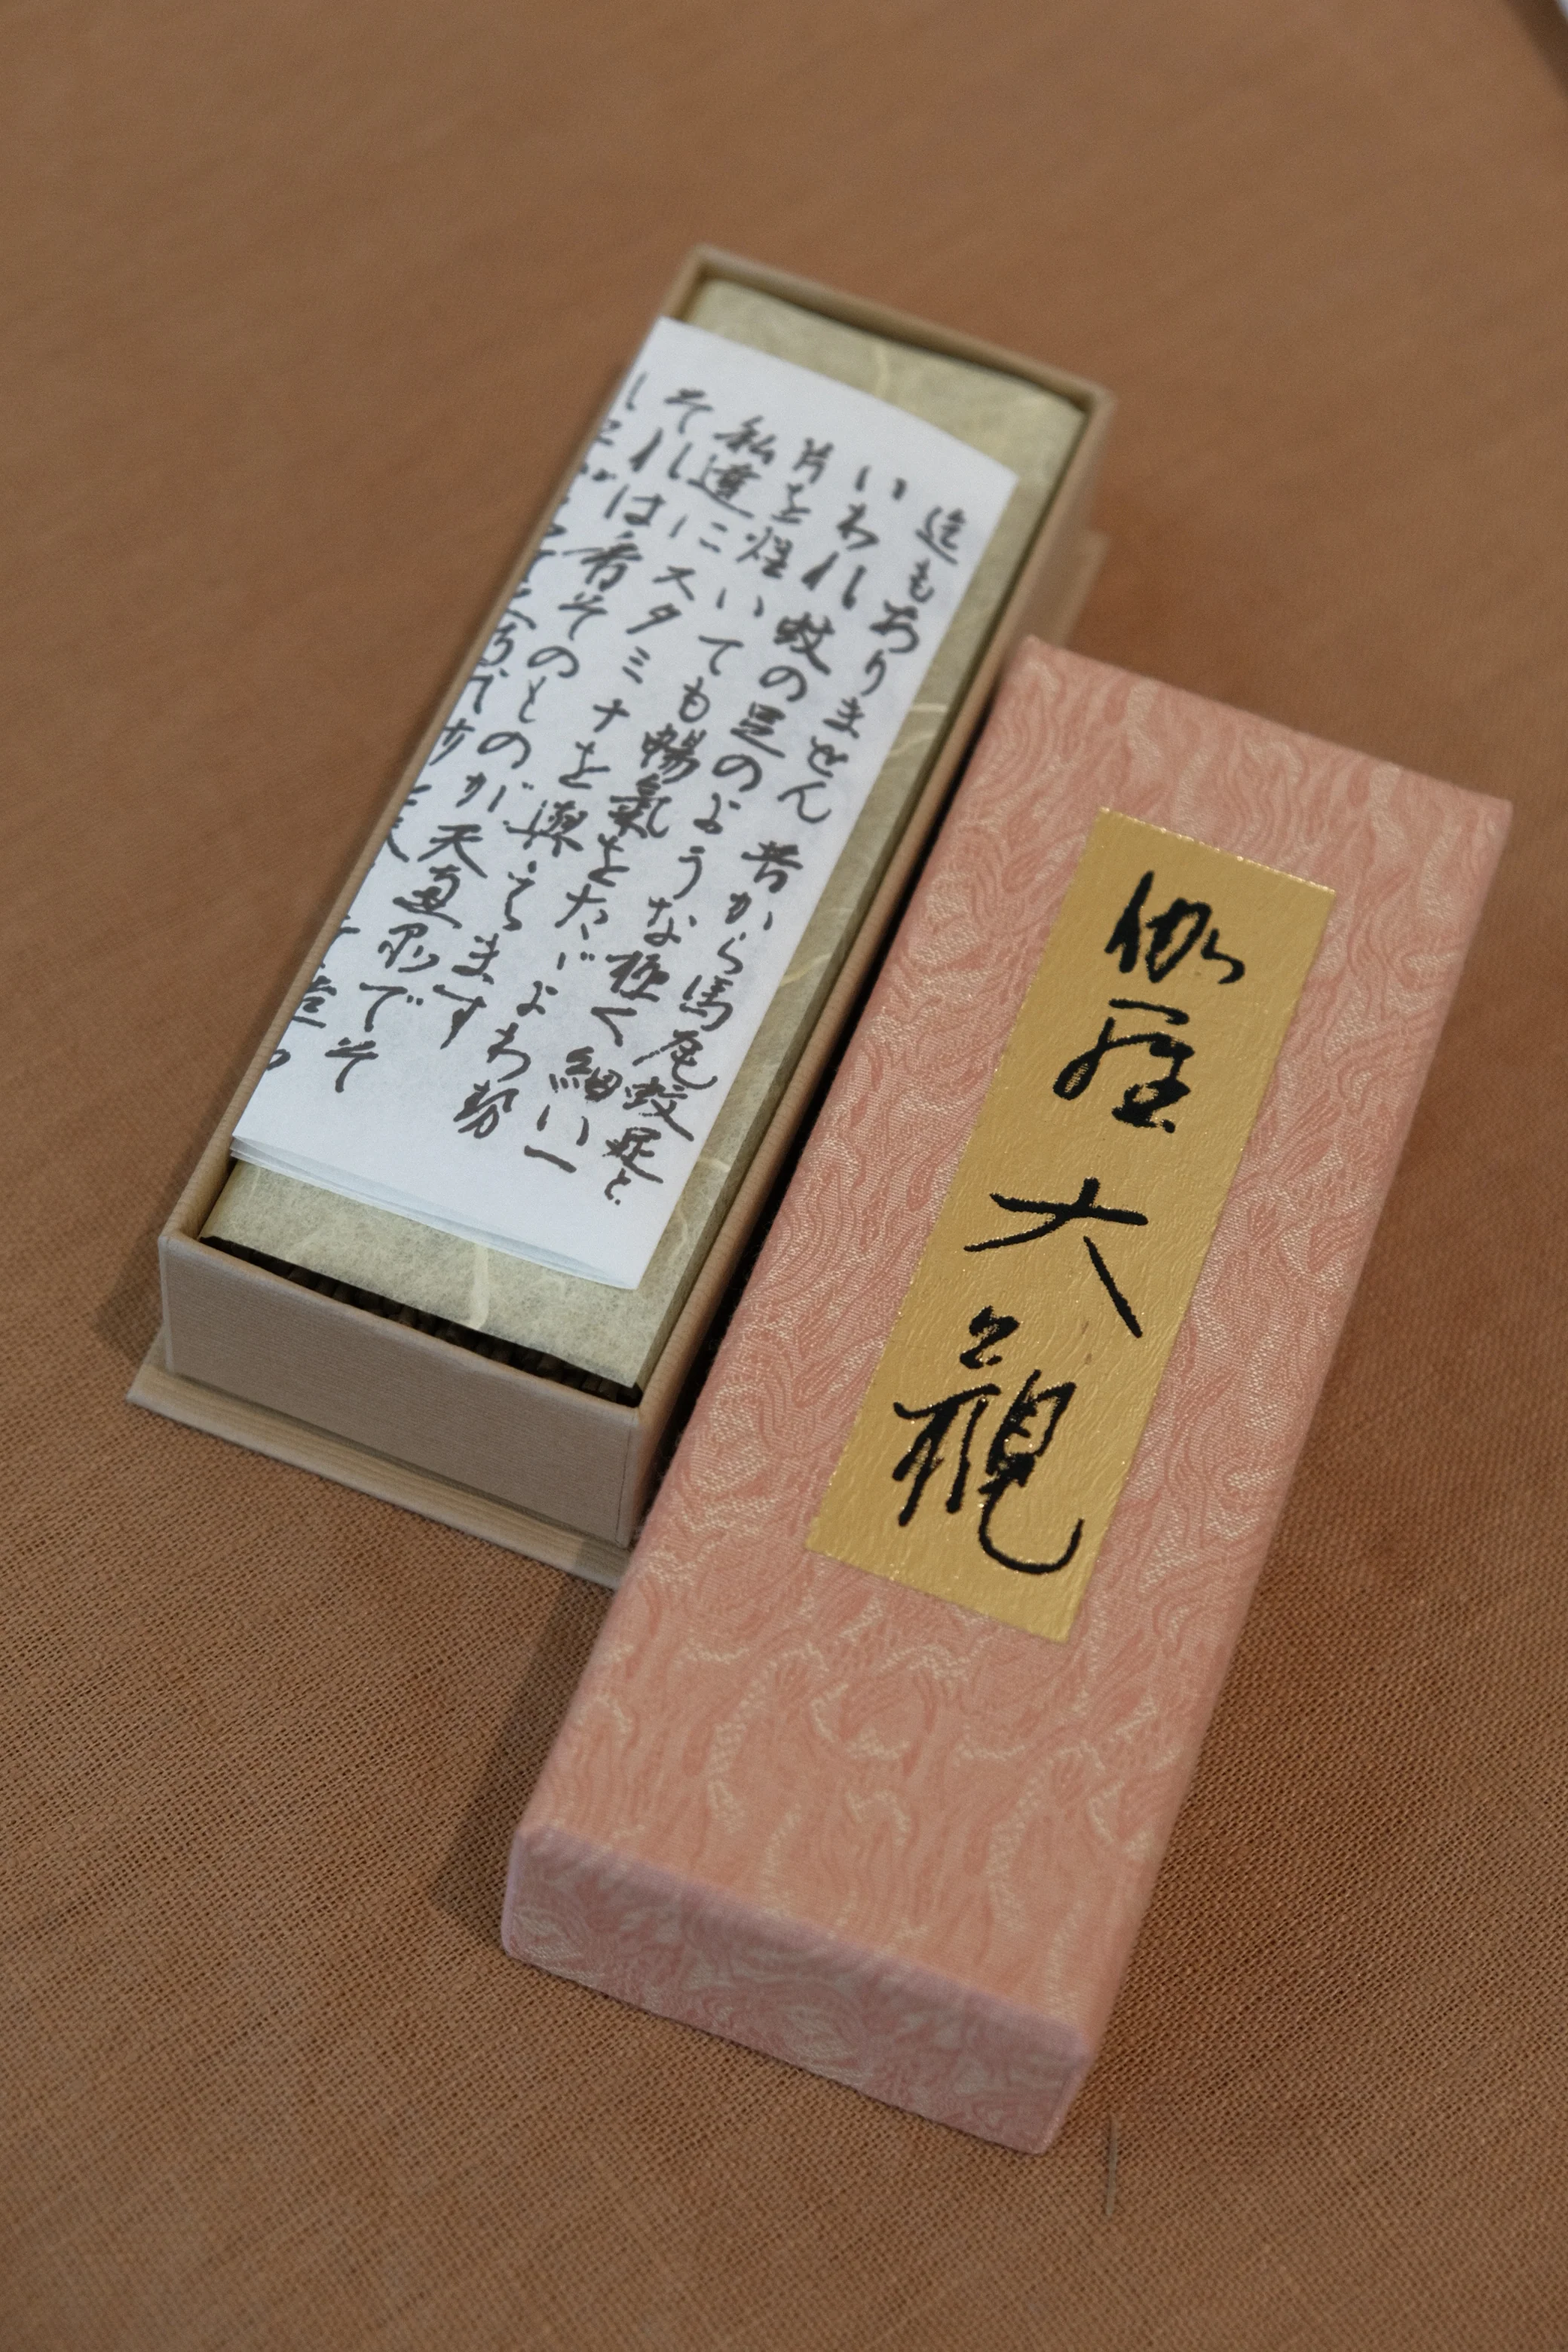 迄もありません 昔から馬尾蚊足と
いわれ 蚊の足のような極く細い一
片を いても暢氣をたゞよわ勢
私達にスタミナを與えます
それは香そのものが天 でそ
伽羅大観